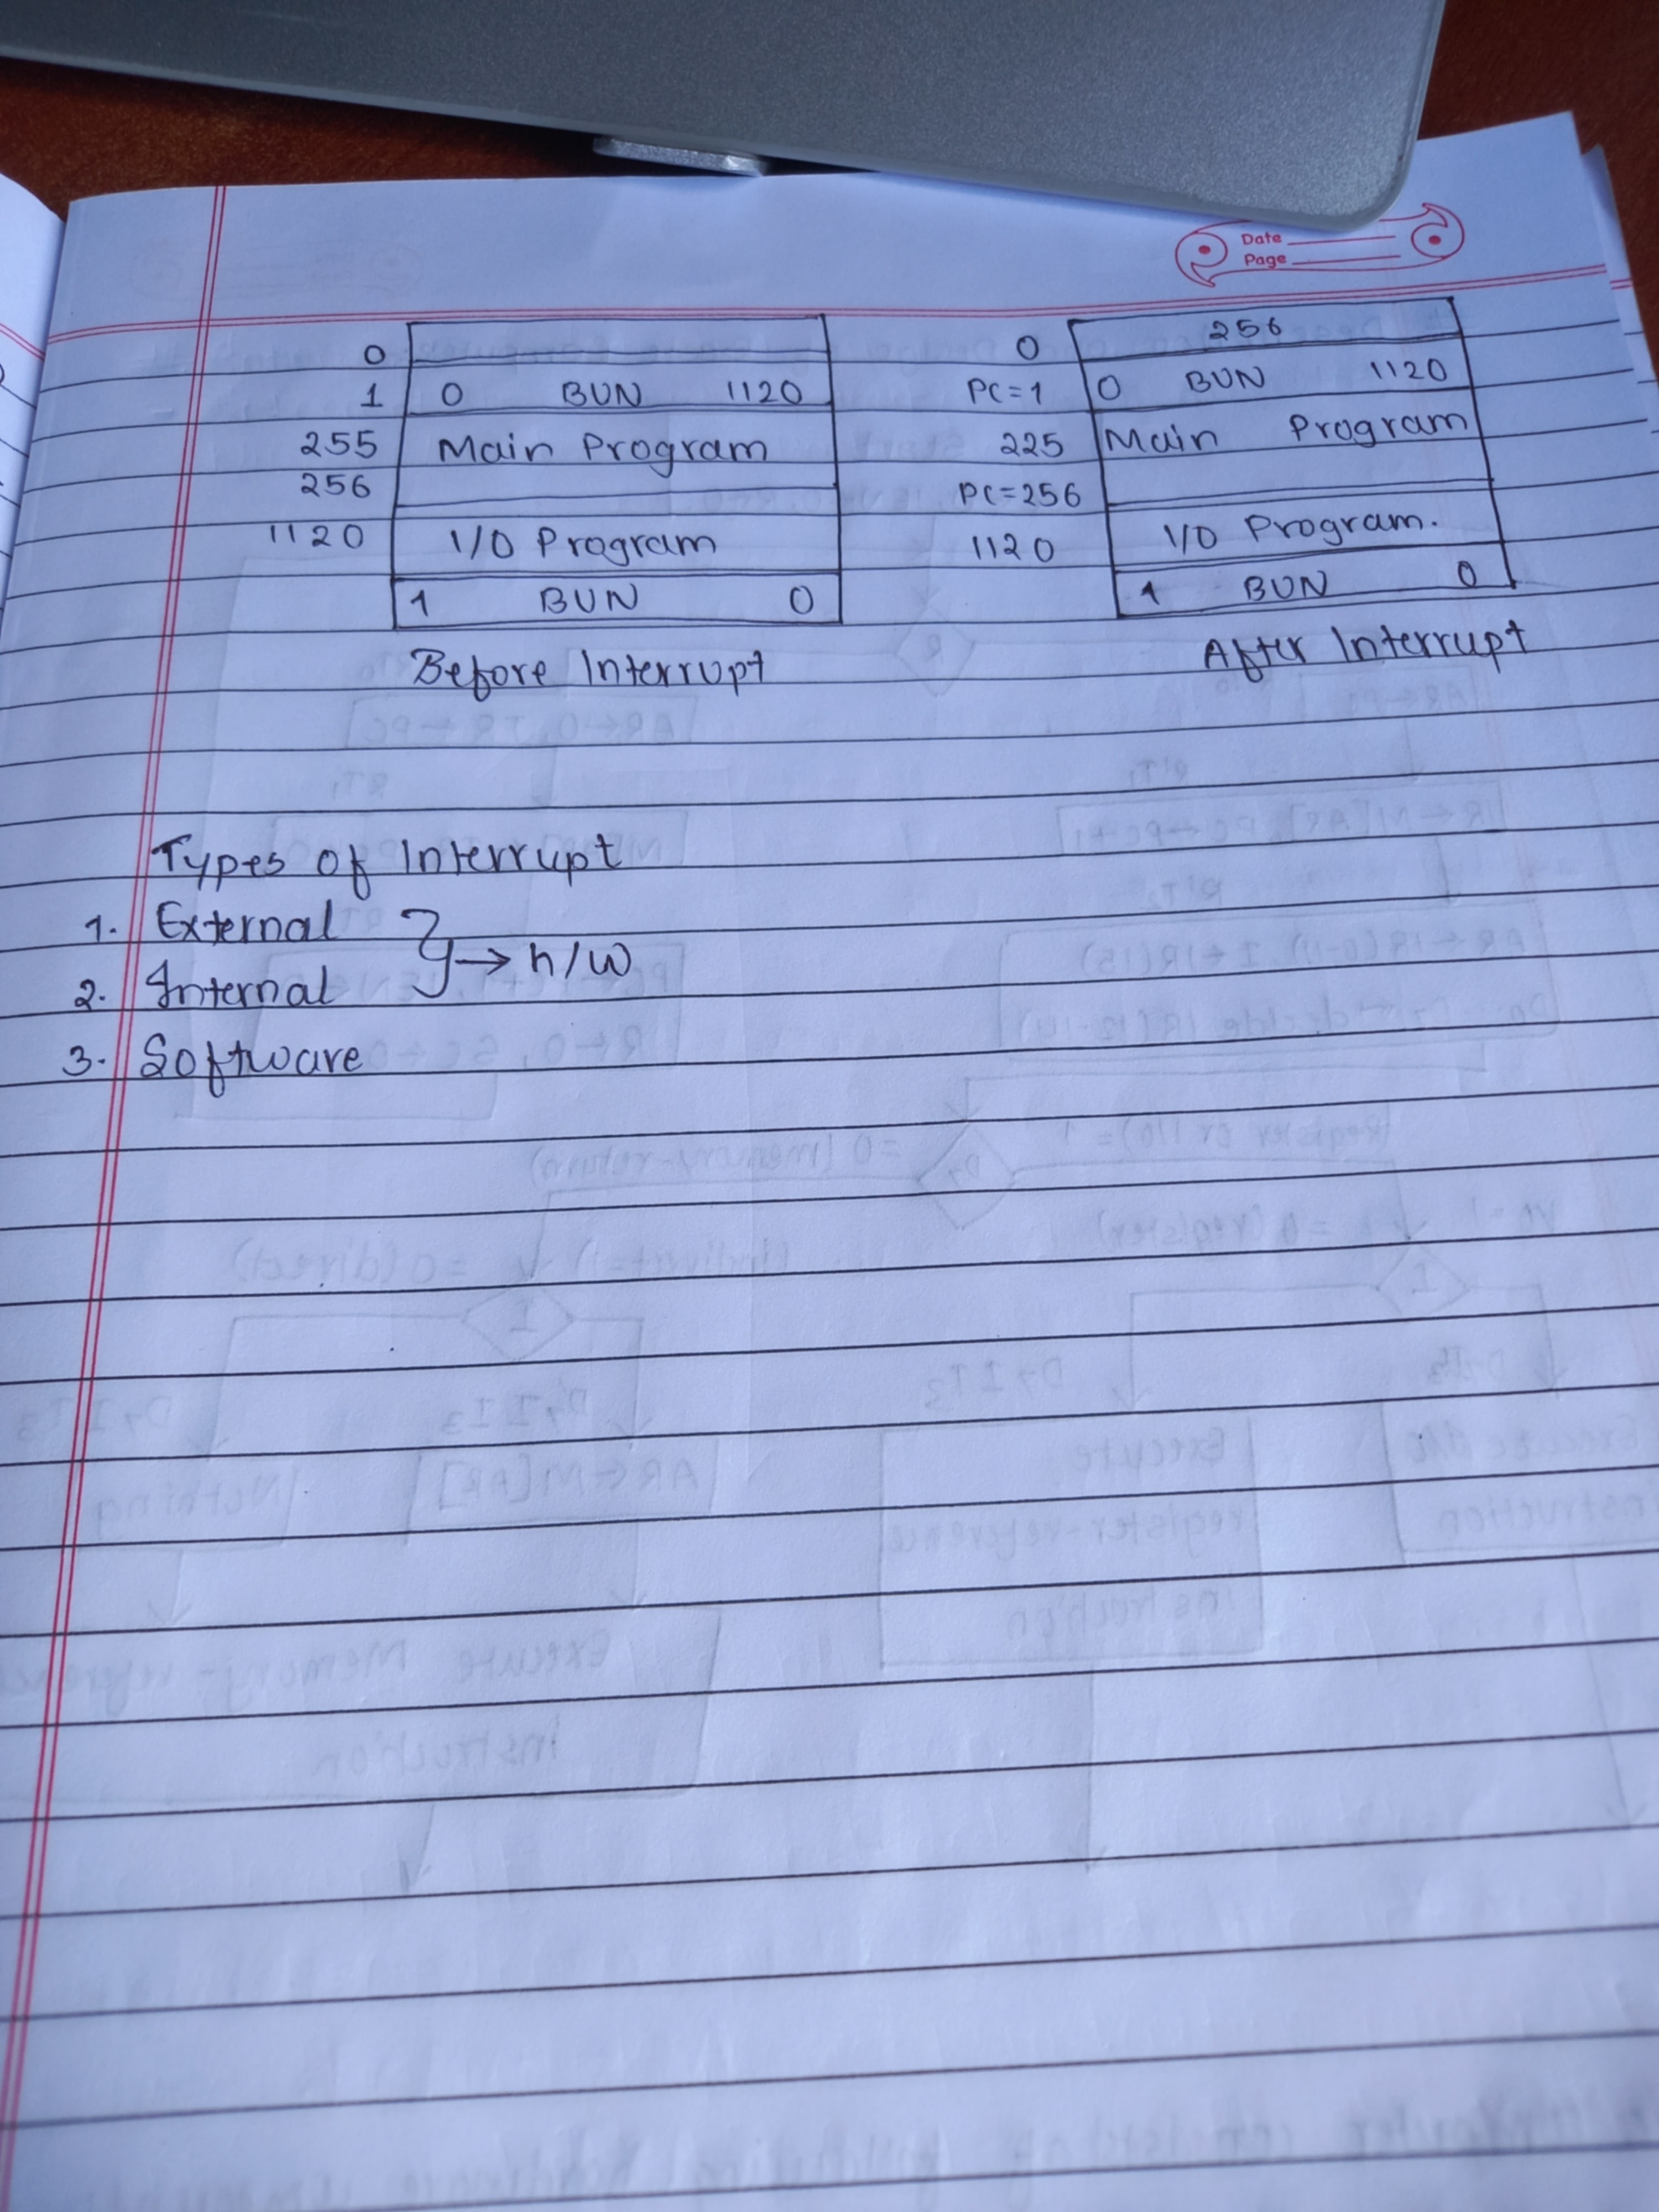 Date
Page
0
1 0 BUN 1120
255 Main Program
256
1120 I/O Program
1 BUN 0
Before Interrupt
0 256
PC=1 0 BUN 1120
225 Main Program
PC=256
1120 I/O Program.
1 BUN 0
After Interrupt
Types of Interrupt
1. External
→ h/w
2. Internal
3. Software